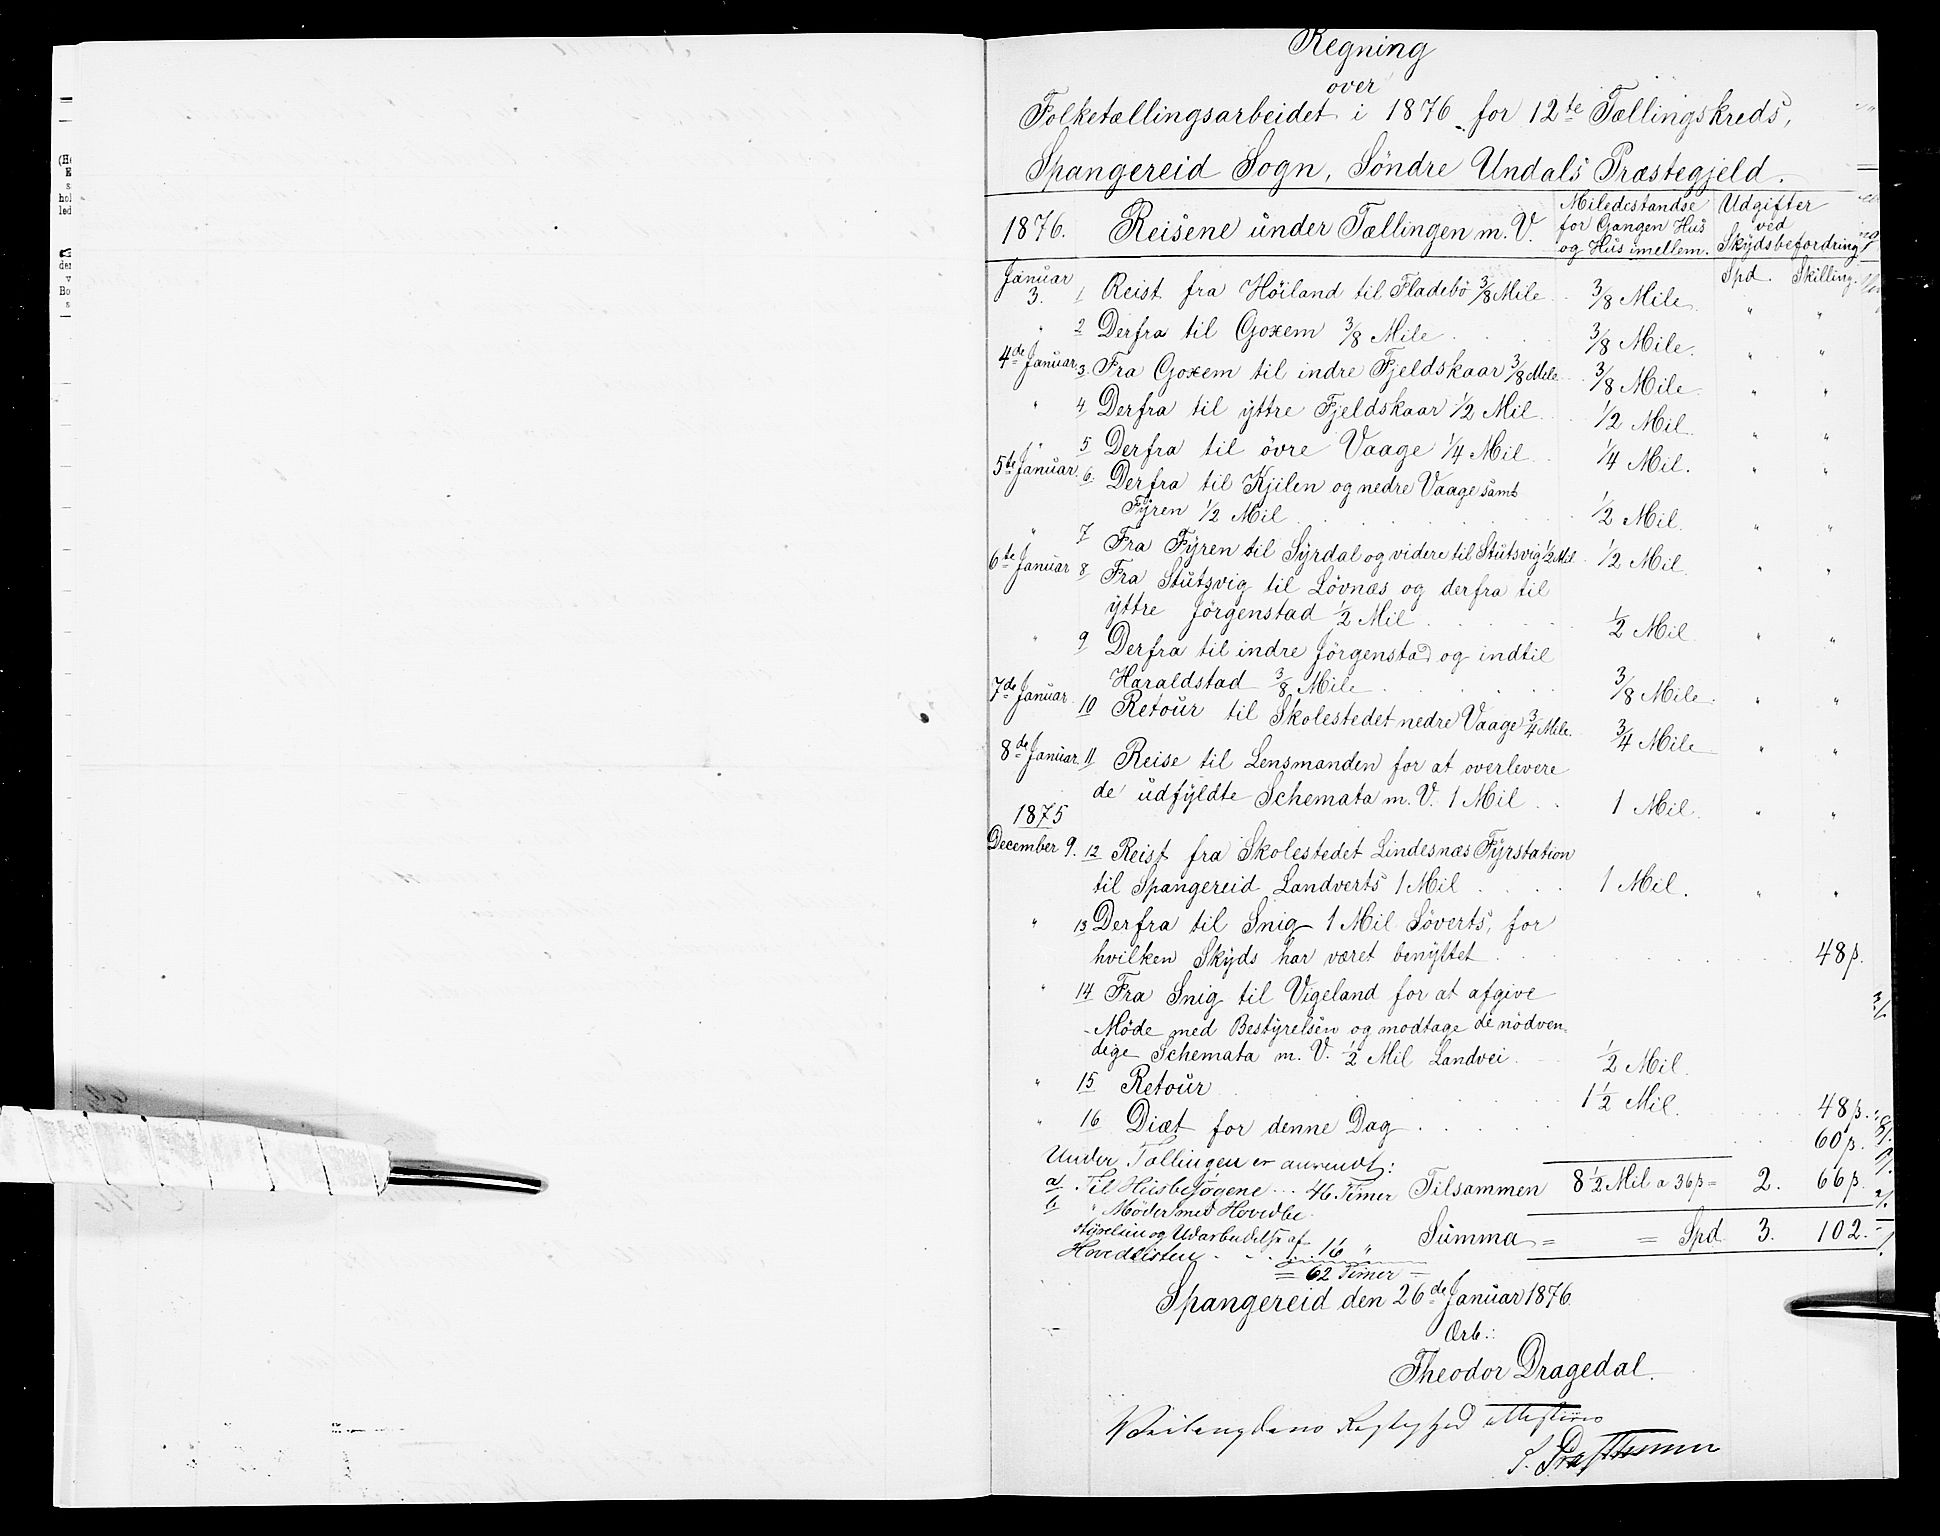 Regning
over
Folketællingsarbeidet i 1876 for 12te Tællingskreds,
Spangereid Sogn, Söndre Undals Præstegjeld.
1876. Reisene under Tællingen m. V. Miledestandse for Gangen Hus og Hus imellem. Udgifter ved Skydsbefordring
Spd. Skilling.
Januar 3. 1 Reist fra Höiland til Fladebö 3/8 Mile 3/8 Mile " "
" 2 Derfra til Goxem 3/8 Mile . . . 3/8 Mile. " "
4de Januar 3 Fra Goxem til indre Fjeldskaar 3/8 Mile 3/8 Mile " "
" 4 Derfra til yttre Fjeldskaar 1/2 Mil 1/2 Mil " "
" 5 Derfra til övre Vaage 1/4 Mil 1/4 Mil. " "
5te Januar 6. Derfra til Kjilen og nedre Vaage samt
Fyren 1/2 Mil . . . 1/2 Mil. " "
" 7 Fra Fyren til Syrdal og videre til Stutsvig 1/2 Mil 1/2 Mil " "
6te Januar 8 Fra Stutsvig til Lövnæs og derfra til
yttre Jörgenstad 1/2 Mil . . . 1/2 Mil " "
" 9 Derfra til indre Jörgenstad og indtil
Haraldstad 3/8 Mile . . . 3/8 Mile. " "
7de Januar 10 Retour til Skolestedet nedre Vaage 3/4 Mile. 3/4 Mile " "
8de Januar 11 Reise til Lensmanden for at overlevere
de udfyldte Schemata m. V. 1 Mil . . 1 Mil. " "
1875
December 9. 12 Reist fra Skolestedet Lindesnæs Fyrstation
til Spangereid Landverts 1 Mil . . . 1 Mil. " "
" 13 Derfra til Snig 1 Mil Söverts, for
hvilken Skyds har været benyttet . . . 48 β.
" 14 Fra Snig til Vigeland for at afgive
Möde med Bestyrelsen og modtage de nödven-
dige Schemata m. V. 1/2 Mil Landvei . 1/2 Mil.
" 15 Retour . . . 1 1/2 Mil. . . . 48 β.
" 16 Diæt for denne Dag . . . 60 β.
Under Tællingen er anvendt:
a. Til Husbesøgene . . . 46 Timer Tilsammen 8 1/2 Mil a 36 β = 2. 66 β.
b. " Møder med Hovedbe-
styrelsen og Udarbeidelse af
Hovedlisten . . . 16 " Summa = = Spd 3. 102.
= 62 Timer =
Spangereid den 26de Januar 1876.
Ærb.:
Theodor Dragedal.